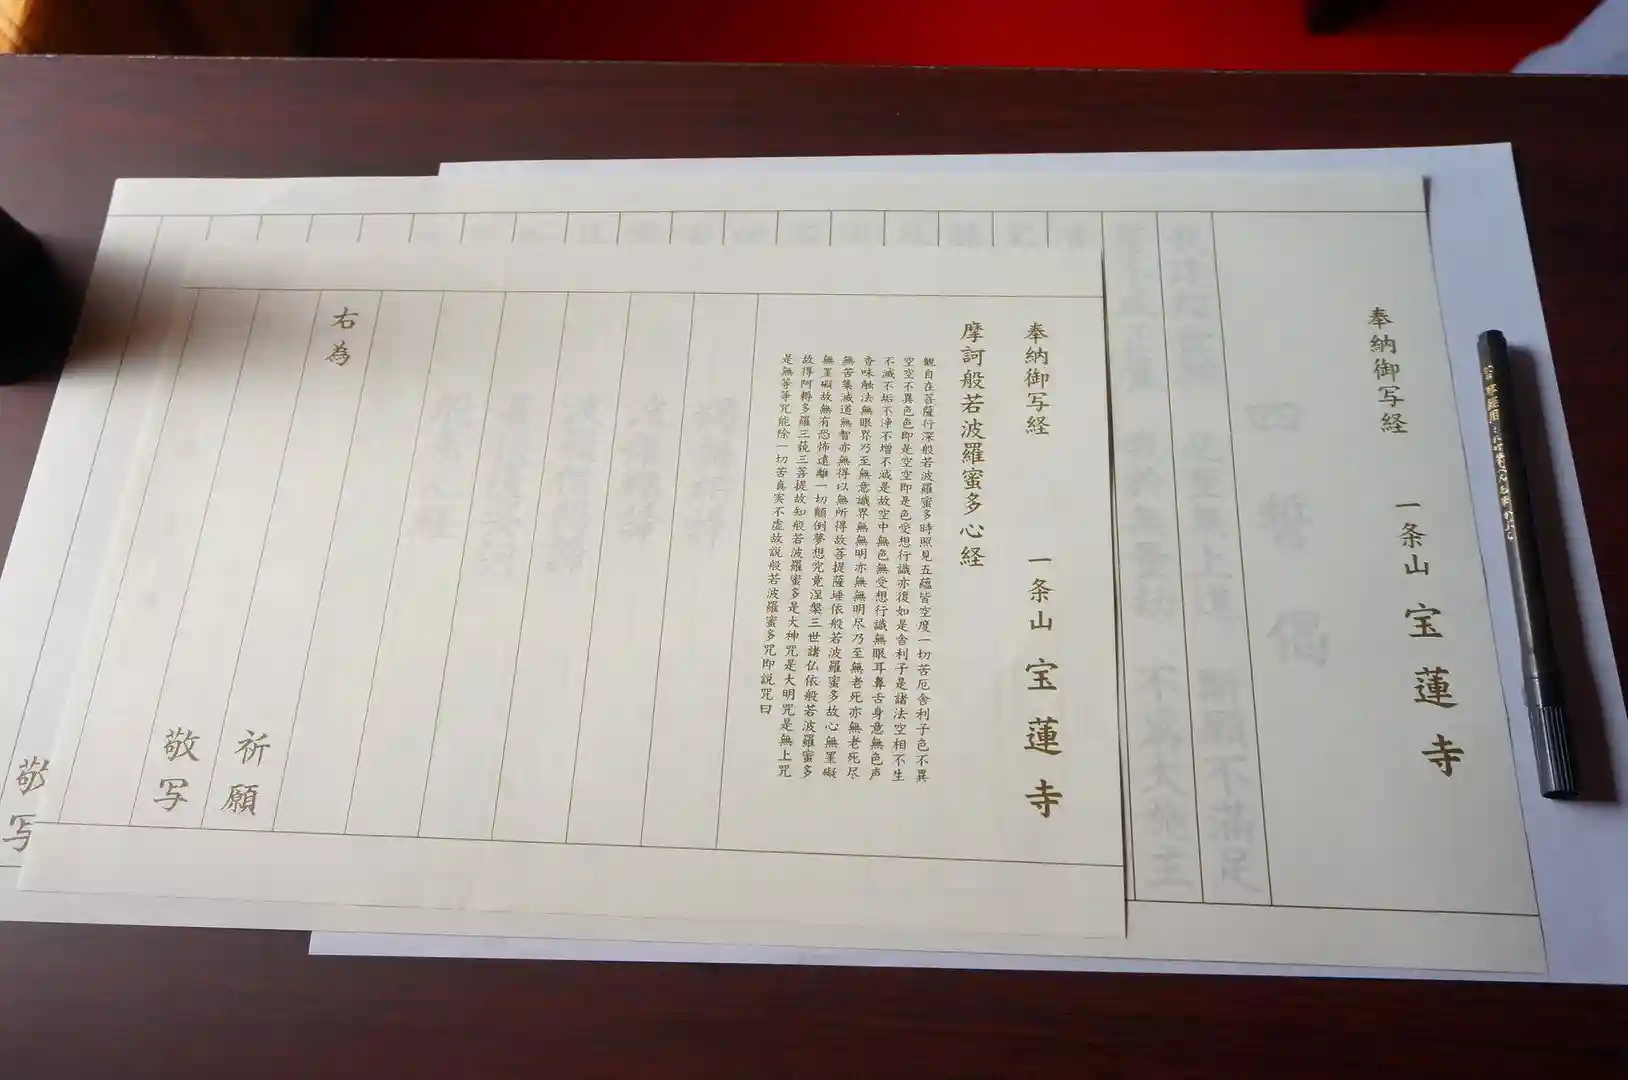 奉納御写経 一条山 宝蓮寺
四誓偈
我建超世願 必至無上道 斯願不満足
我於無量劫 不為大施主
奉納御写経 一条山 宝蓮寺
摩訶般若波羅蜜多心経
観自在菩薩行深般若波羅蜜多時照見五蘊皆空度一切苦厄舎利子色不異
空空不異色色即是空空即是色受想行識亦復如是舎利子是諸法空相不生
不滅不垢不浄不増不減是故空中無色無受想行識無眼耳鼻舌身意無色声
香味触法無眼界乃至無意識界無無明亦無無明尽乃至無老死亦無老死尽
無苦集滅道無智亦無得以無所得故菩提薩埵依般若波羅蜜多故心無罣礙
無罣礙故無有恐怖遠離一切顛倒夢想究竟涅槃三世諸仏依般若波羅蜜多
故得阿耨多羅三藐三菩提故知般若波羅蜜多是大神呪是大明呪是無上呪
是無等等呪能除一切苦真実不虚故説般若波羅蜜多呪即説呪曰
羯諦羯諦
波羅羯諦
波羅僧羯諦
菩提薩婆訶
般若心経
右為
祈願
敬写
敬写